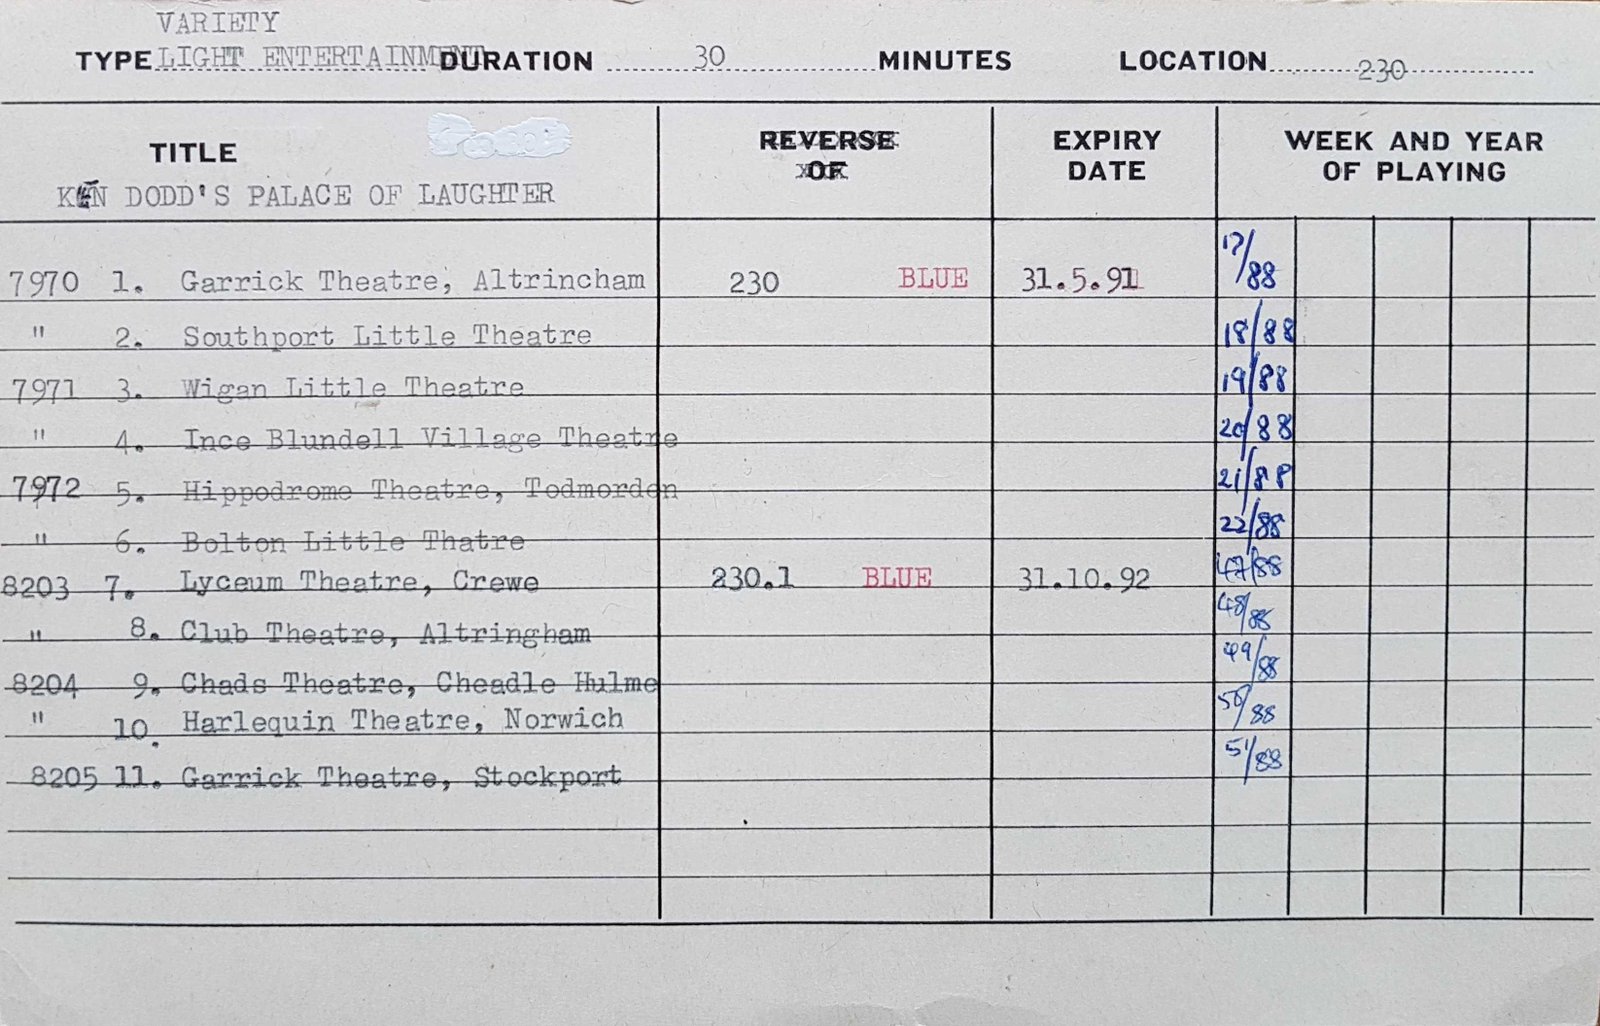 VARIETY
TYPE LIGHT ENTERTAINMENT DURATION 30 MINUTES LOCATION 230
TITLE REVERSE OF EXPIRY DATE WEEK AND YEAR OF PLAYING
KEN DODD'S PALACE OF LAUGHTER
7970 1. Garrick Theatre, Altrincham 230 BLUE 31.5.91 17/88
" 2. Southport Little Theatre 18/88
7971 3. Wigan Little Theatre 19/88
" 4. Ince Blundell Village Theatre 20/88
7972 5. Hippodrome Theatre, Todmorden 21/88
" 6. Bolton Little Thatre 22/88
8203 7. Lyceum Theatre, Crewe 230.1 BLUE 31.10.92 47/88
" 8. Club Theatre, Altringham 48/88
8204 9. Chads Theatre, Cheadle Hulme 49/88
" 10. Harlequin Theatre, Norwich 50/88
8205 11. Garrick Theatre, Stockport 51/88